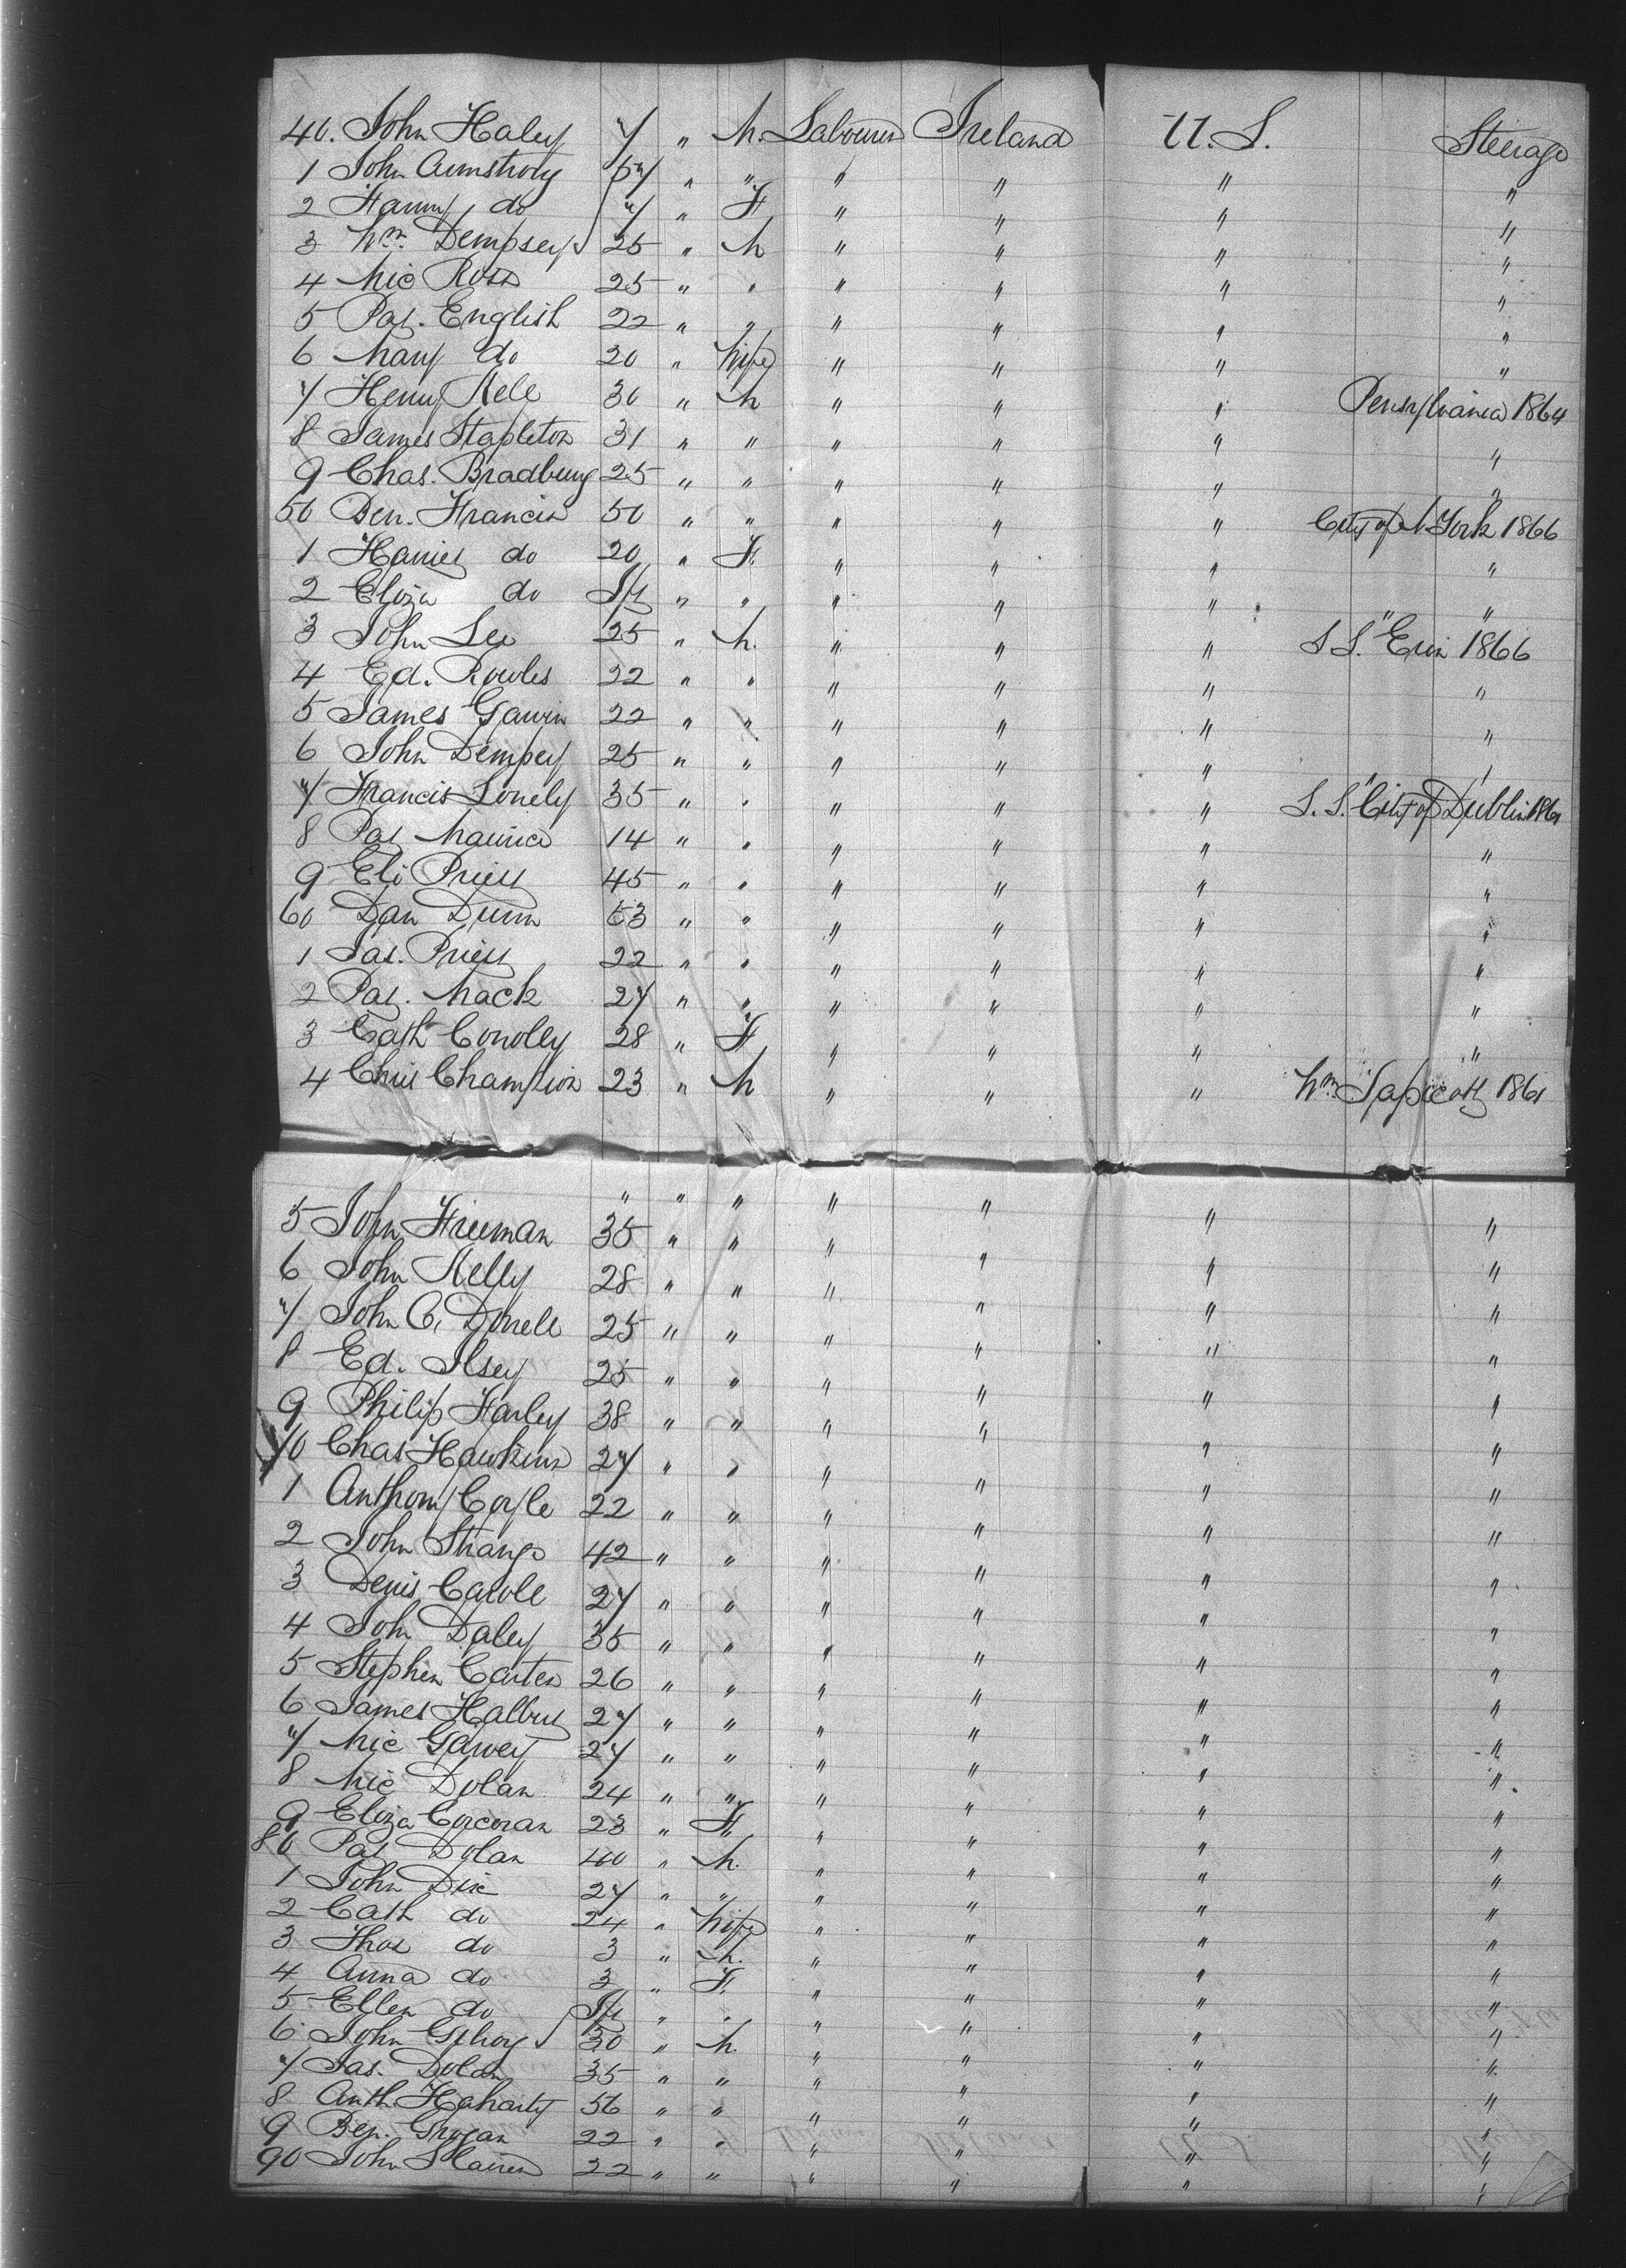 40. John Haley 7 " M. Labourer Ireland U.S. Steerage
1 John Armstrong 57 " " " " " "
2 Fanny do 7 " F " " " "
3 Wm. Dempsey 25 " M " " " "
4 Mic Ross 25 " " " " " "
5 Pat. English 22 " " " " " "
6 Mary do 20 " Wife " " " "
7 Henry Kele 30 " M " " " Pensylvania 1864
8 James Stapleton 31 " " " " " "
9 Chas. Bradbury 25 " " " " " "
50 Ben. Francis 50 " " " " " City of N. York 1866
1 Harriet do 20 " F. " " " "
2 Eliza do Inf " " " " " "
3 John Lee 25 " M. " " " S.S. "Erin 1866
4 Ed. Rowles 22 " " " " " "
5 James Gavin 22 " " " " " "
6 John Dempsey 25 " " " " " "
7 Francis Lonely 35 " " " " " S.S. "City of Dublin 1861
8 Pat Maurice 14 " " " " " "
9 Eli Priest 45 " " " " " "
60 Dan Dunn 53 " " " " " "
1 Jas. Priest 22 " " " " " "
2 Pat. Mack 27 " " " " " "
3 Cath Conolly 28 " F " " " "
4 Chris Champion 23 " M " " " Wm. Tapscott 1861
" " " " " " "
5 John Freeman 35 " " " " " "
6 John Kelly 28 " " " " " "
7 John O, Donell 25 " " " " " "
8 Ed. Ilsey 25 " " " " " "
9 Philip Farley 38 " " " " " "
70 Chas Hawkins 27 " " " " " "
1 Anthony Coyle 22 " " " " " "
2 John Strange 42 " " " " " "
3 Denis Carole 27 " " " " " "
4 John Daley 35 " " " " " "
5 Stephen Carter 26 " " " " " "
6 James Halbry 27 " " " " " "
7 Mic Garvey 27 " " " " " "
8 Mic Dolan 24 " " " " " "
9 Eliza Corcoran 23 " F " " " "
80 Pat Dolan 40 " M. " " " "
1 John Dixe 27 " " " " " "
2 Cath do 24 " Wife " " " "
3 Thos do 3 " M. " " " "
4 Anna do 3 " F. " " " "
5 Ellen do Inf " " " " " "
6 John Gilroy 30 " M. " " " "
7 Jas. Dolan 35 " " " " " "
8 Anth. Faharty 56 " " " " " "
9 Ben. Grogan 22 " " " " " "
90 John 22 " " " " " "